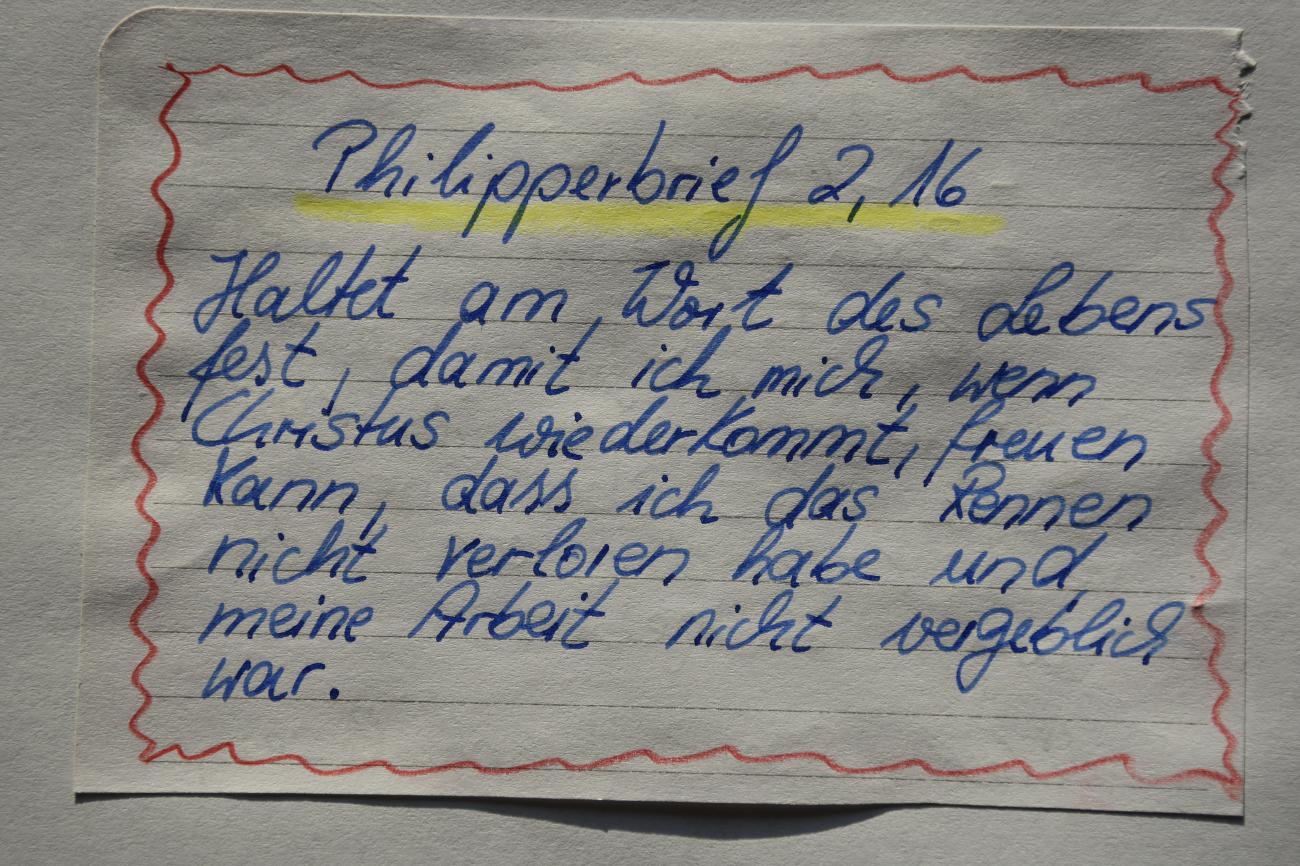 Philipperbrief 2, 16
Haltet am Wort des Lebens
fest, damit ich mich, wenn
Christus wiederkommt, freuen
kann, dass ich das Rennen
nicht verloren habe und
meine Arbeit nicht vergeblich
war.